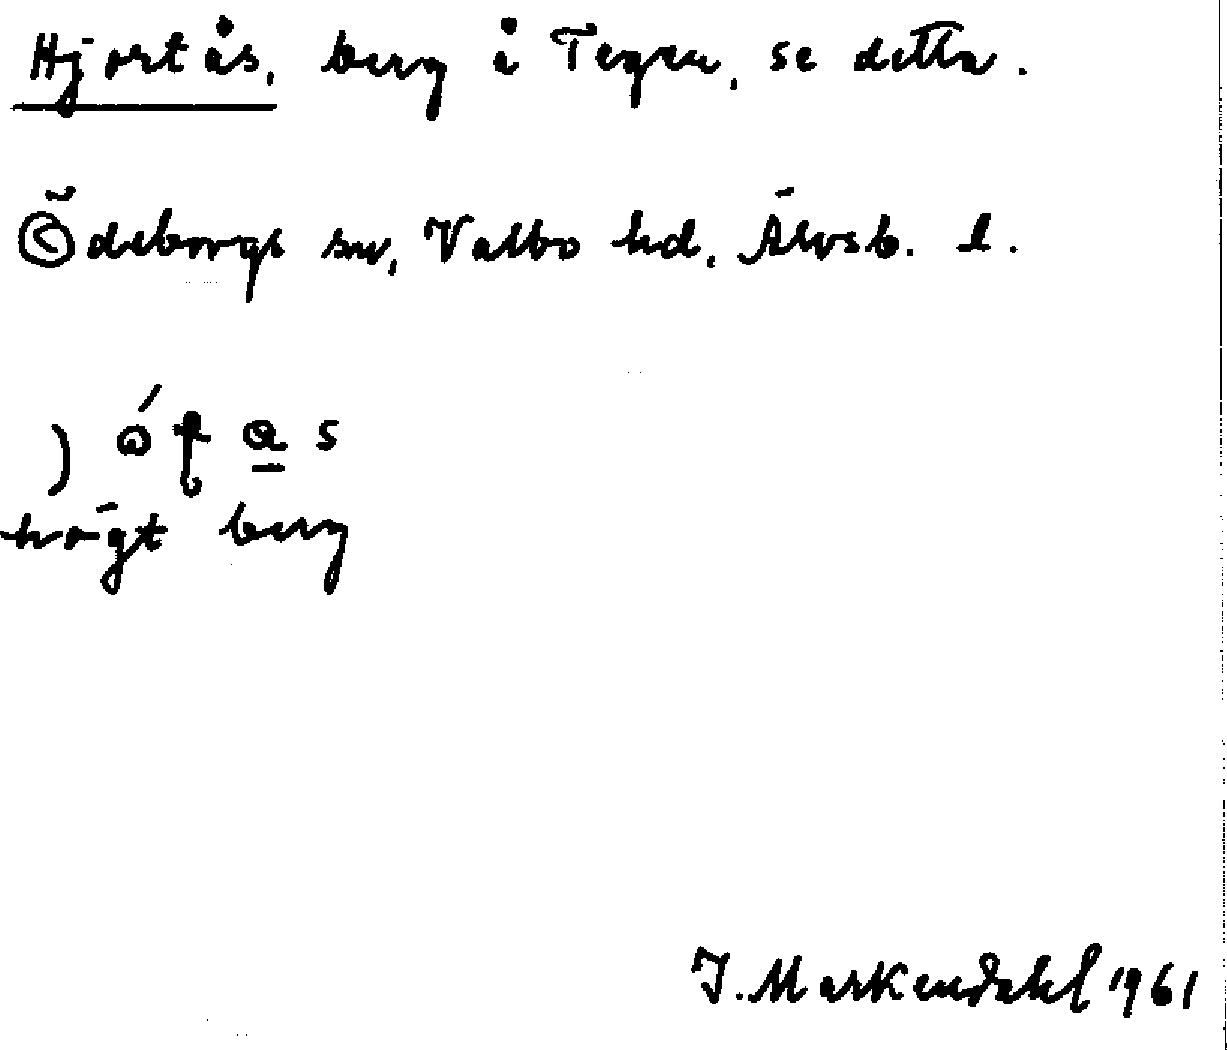 Hjortås, berg i Tegen, se detta.
Ödeborgs sn, Valbo hd, Älvsb. l.
högt berg
J. Markendahl 1961